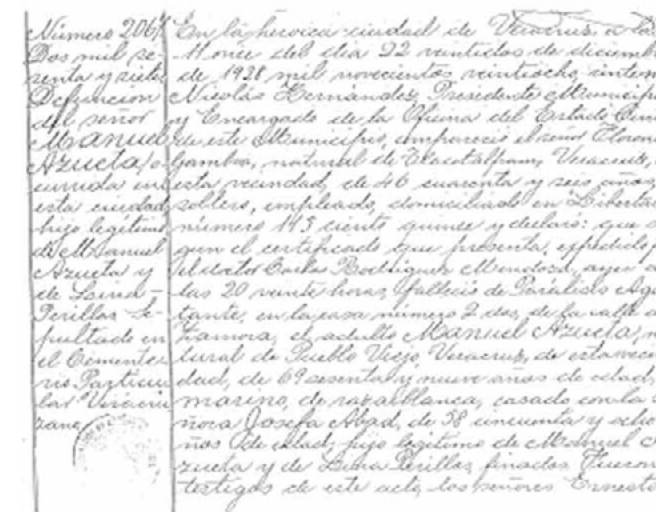 Número 2067
Dos mil se-
senta y siete
Defunción
del señor
Manuel
Azueta, o-
currida en
esta ciudad
hijo legítimo
de Manuel
Azueta y
de Luisa
Perillos Se-
pultado en
el Cemente-
rio Particu
lar Veracru
zano
En la heroica ciudad de Veracruz, a las
11 once del día 22 veintidos de diciemb
de 1928 mil novecientos veintiocho, ante m
Nicolás Hernández, Presidente Municip
y Encargado de la Oficina del Estado Civi
de este Municipio, compareció el señor Floren
Gamboa, natural de Tlacotalpam, Veracruz,
esta vecindad, de 46 cuarenta y seis años
soltero, empleado, domiciliado en Libertad
número 115 ciento quince y declaró: que
gun el certificado que presenta, expedido p
el doctor Carlos Rodríguez Mendoza, ayer a
las 20 veinte horas, falleció de Parálisis Agi
tante, en la casa numero 2 dos, de la calle d
Zamora, el adulto Manuel Azueta, n
tural de Pueblo Viejo, Veracruz, de esta vecin
dad, de 69 sesenta y nueve años de edad,
marino, de raza blanca, casado con la s
ñora Josefa Abad, de 58 cincuenta y ocho
ños de edad, hijo legítimo de Manuel A
zueta y de Luisa Perillos, finados Fueron
testigos de este acto, los señores Ernesto